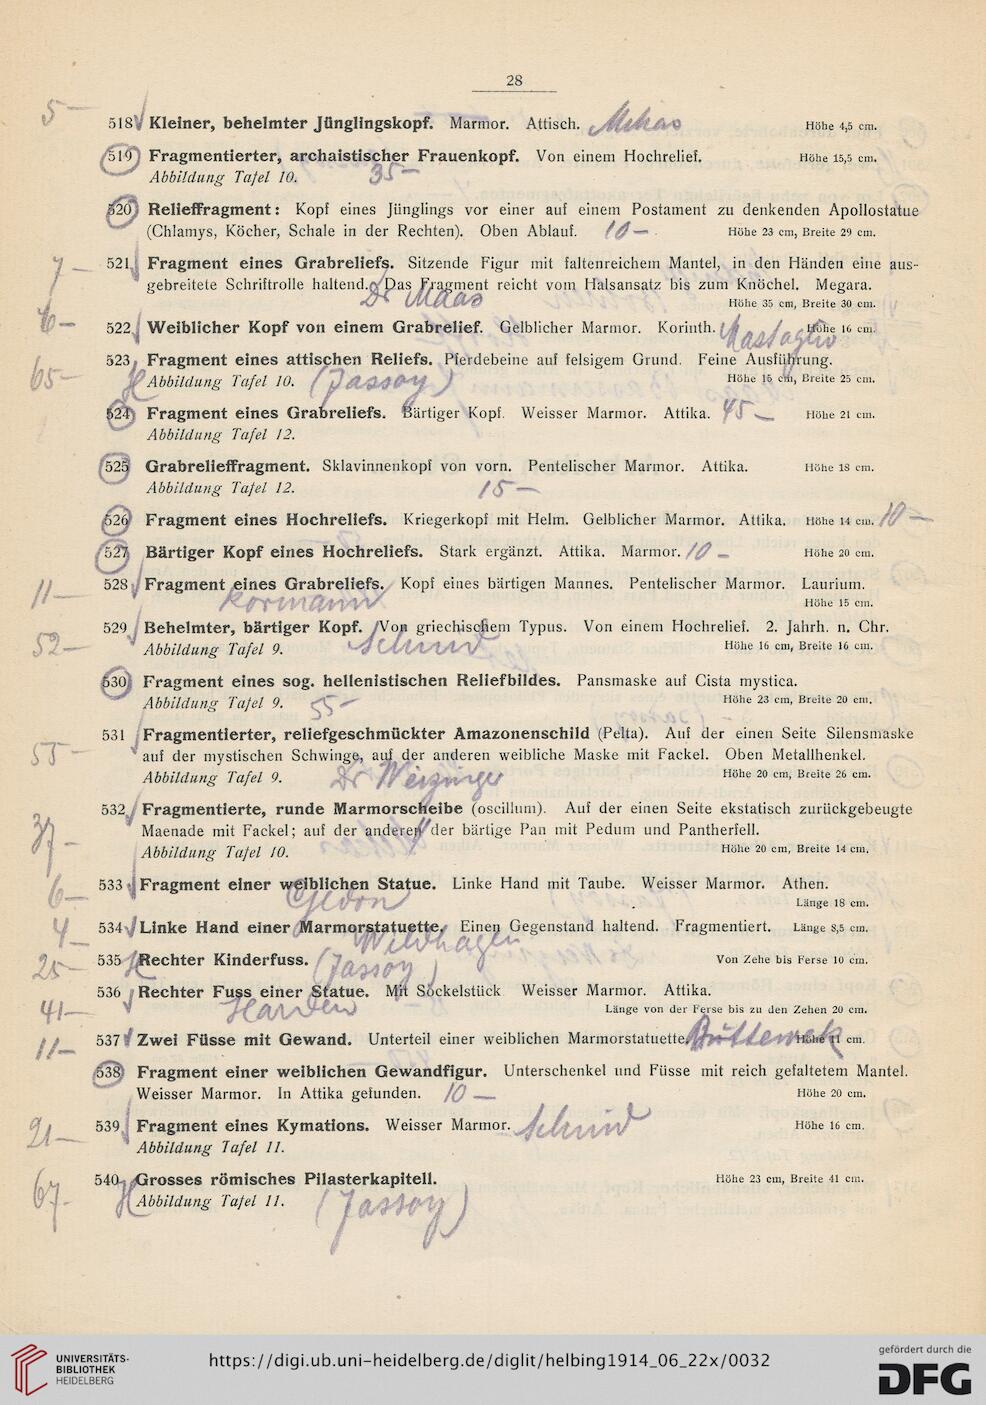 28
5—
518 Kleiner, behelmter Jünglingskopf. Marmor. Attisch. Höhe 4,5 cm.
519 Fragmentierter, archaistischer Frauenkopf. Von einem Hochrelief. Höhe 15,5 cm.
Abbildung Tafel 10. 35—
520 Relieffragment: Kopf eines Jünglings vor einer auf einem Postament zu denkenden Apollostatue
(Chlamys, Köcher, Schale in der Rechten). Oben Ablauf. 10— Höhe 23 cm, Breite 29 cm.
7— 521 Fragment eines Grabreliefs. Sitzende Figur mit faltenreichem Mantel, in den Händen eine aus-
gebreitete Schriftrolle haltend. Das Fragment reicht vom Halsansatz bis zum Knöchel. Megara.
Dr Maas Höhe 35 cm, Breite 30 cm.
6— 522 Weiblicher Kopf von einem Grabrelief. Gelblicher Marmor. Korinth. Höhe 16 cm.
523 Fragment eines attischen Reliefs. Pferdebeine auf felsigem Grund. Feine Ausführung.
65— H Abbildung Tafel 10. (Jassoy) Höhe 15 cm, Breite 25 cm.
524 Fragment eines Grabreliefs. Bärtiger Kopf. Weisser Marmor. Attika. 45— Höhe 21 cm.
Abbildung Tafel 12.
525 Grabrelieffragment. Sklavinnenkopf von vorn. Pentelischer Marmor. Attika. Höhe 18 cm.
Abbildung Tafel 12. 15—
526 Fragment eines Hochreliefs. Kriegerkopf mit Helm. Gelblicher Marmor. Attika. Höhe 14 cm. 10—
527 Bärtiger Kopf eines Hochreliefs. Stark ergänzt. Attika. Marmor. 10— Höhe 20 cm.
11— 528 Fragment eines Grabreliefs. Kopf eines bärtigen Mannes. Pentelischer Marmor. Laurium.
Kormann Höhe 15 cm.
529 Behelmter, bärtiger Kopf. Von griechischem Typus. Von einem Hochrelief. 2. Jahrh. n. Chr.
52— Abbildung Tafel 9. Schmid Höhe 16 cm, Breite 16 cm.
530 Fragment eines sog. hellenistischen Reliefbildes. Pansmaske auf Cista mystica.
Abbildung Tafel 9. 55— Höhe 23 cm, Breite 20 cm.
531 Fragmentierter, reliefgeschmückter Amazonenschild (Pelta). Auf der einen Seite Silensmaske
55— auf der mystischen Schwinge, auf der anderen weibliche Maske mit Fackel. Oben Metallhenkel.
Abbildung Tafel 9. Dr Weizinger Höhe 20 cm, Breite 26 cm.
532 Fragmentierte, runde Marmorscheibe (oscillum). Auf der einen Seite ekstatisch zurückgebeugte
37— Maenade mit Fackel; auf der anderen der bärtige Pan mit Pedum und Pantherfell.
Abbildung Tafel 10. Höhe 20 cm, Breite 14 cm.
6— 533 Fragment einer weiblichen Statue. Linke Hand mit Taube. Weisser Marmor. Athen.
Gedon Länge 18 cm.
4— 534 Linke Hand einer Marmorstatuette. Einen Gegenstand haltend. Fragmentiert. Länge 8,5 cm.
Wildhagen
25— 535 H Rechter Kinderfuss. (Jassoy) Von Zehe bis Ferse 10 cm.
536 Rechter Fuss einer Statue. Mit Sockelstück Weisser Marmor. Attika.
41— Länge von der Ferse bis zu den Zehen 20 cm.
11— 537 Zwei Füsse mit Gewand. Unterteil einer weiblichen Marmorstatuette. Höhe 11 cm.
538 Fragment einer weiblichen Gewandfigur. Unterschenkel und Füsse mit reich gefaltetem Mantel.
Weisser Marmor. In Attika gefunden. 10— Höhe 20 cm.
21— 539 Fragment eines Kymations. Weisser Marmor. Schmid Höhe 16 cm.
Abbildung Tafel 11.
540 Grosses römisches Pilasterkapitell. Höhe 23 cm, Breite 41 cm.
67— H Abbildung Tafel 11. (Jassoy)
UNIVERSITÄTS-
BIBLIOTHEK
HEIDELBERG
https://digi.ub.uni-heidelberg.de/diglit/helbing1914_06_22x/0032
gefördert durch die
DFG